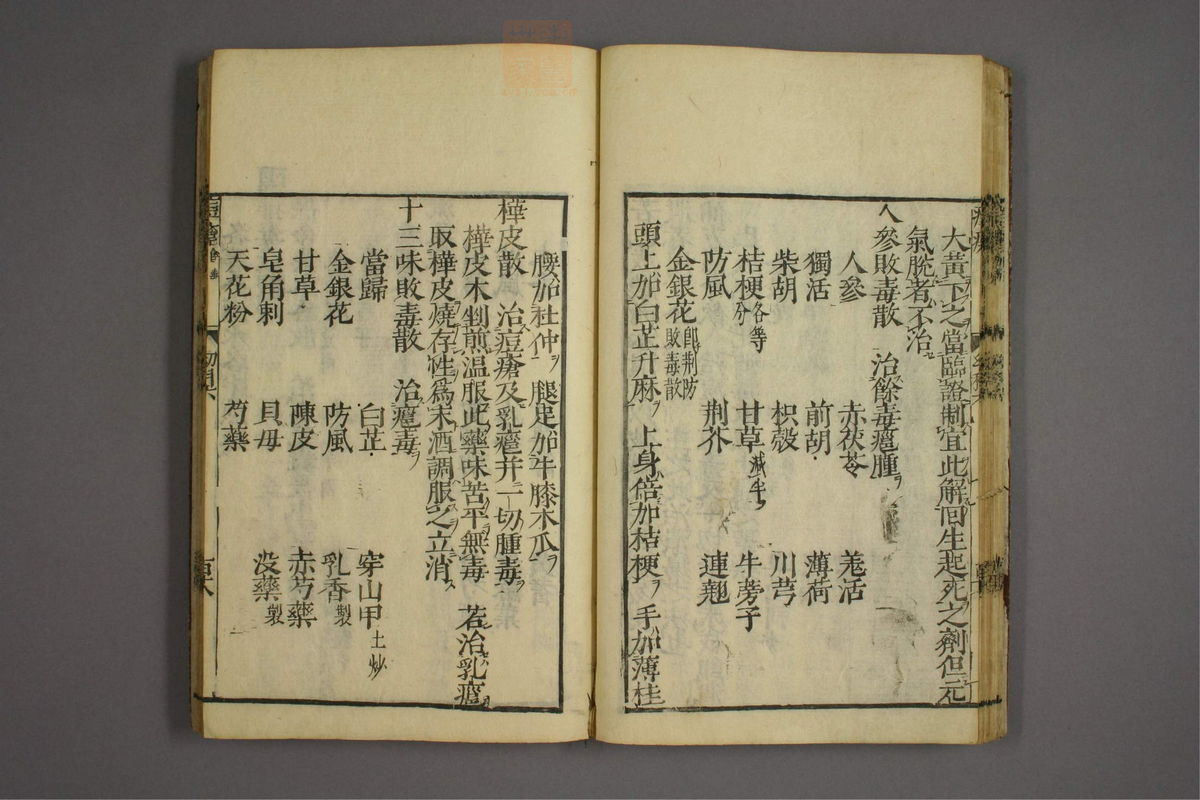 大黃下之當臨證制宜此解回生起死之劑但元
氣脫者不治
人參敗毒散　治餘毒癰腫
人參　赤茯苓　羗活
獨活　前胡　薄荷
柴胡　枳殼　川芎
桔梗各等分　甘草減半　牛蒡子
防風　荆芥　連翹
金銀花卽荆防敗毒散
頭上加白芷升麻　上身倍加桔梗　手加薄桂
腰加杜仲　腿足加牛膝木瓜
樺皮散　治痘瘡及乳癰并一切腫毒
樺皮木剉煎温服此藥味苦平無毒　若治乳癰
取樺皮燒存性爲末酒調服之立消
十三味敗毒散　治癰毒
當歸　白芷　穿山甲土炒
金銀花　防風　乳香製
甘草　陳皮　赤芍藥
皂角刺　貝母　没藥製
天花粉　芍藥